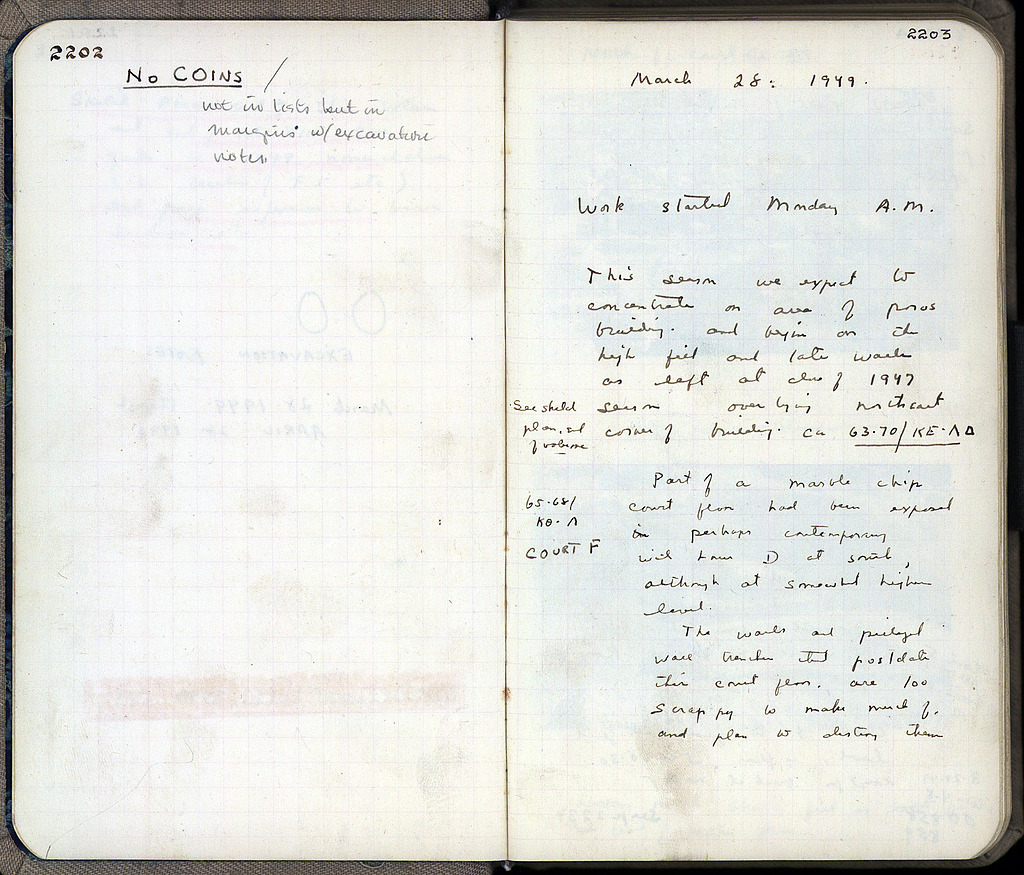 2202
No COINS /
not in lists but in
margins w/excavation
notes
2203
March 28: 1949.
Work started Monday A.M.
This season we expect to
concentrate on area of poros
building. and begin on the
high fill and late walls
as left at close of 1947
season overlying northeast
corner of building. ca 63·70/ΚΕ·ΛΔ
See sketch
plan, end
of volume
Part of a marble chip
court floor had been exposed
in perhaps contemporary
with house D at south,
although at somewhat higher
level.
65·68/
ΚΘ·Λ
COURT F
The walls and pillaged
wall trenches that postdate
this court floor. are too
scrappy to make much of.
and plan to destroy them